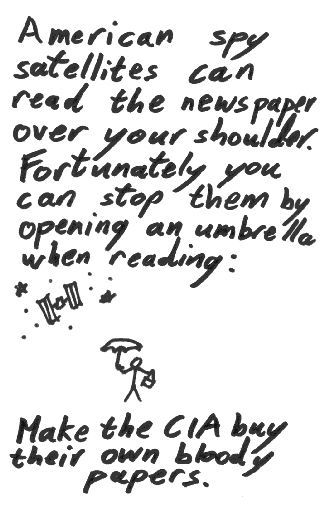 American spy
satellites can
read the newspaper
over your shoulder.
Fortunately you
can stop them by
opening an umbrella
when reading:
Make the CIA buy
their own bloody
papers.